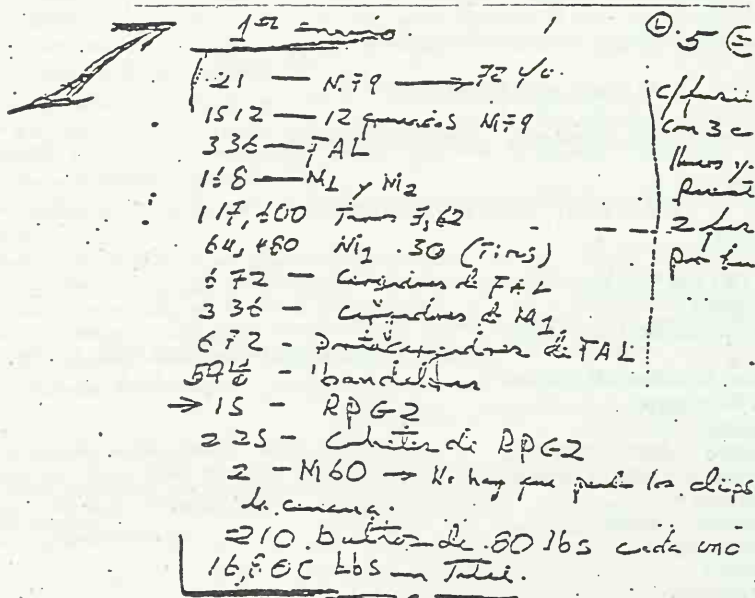 1er envio. 1
21 — M79 → 72 c/u.
1512 — 12 granadas M79
336 — FAL
168 — M1 y M2
117,600 Tiros 7,62
64,480 M1 .30 (Tiros)
672 — Cargadores de FAL
336 — Cargadores de M1.
672 - Portacargadores de FAL
- bandoleras
→ 15 - RPG2
225 - Cohetes de RPG2
2 - M60 → No hay que los clips
de
210 bultos de 80 lbs cada uno
16,800 Lbs en Total.
5
con 3
2
por